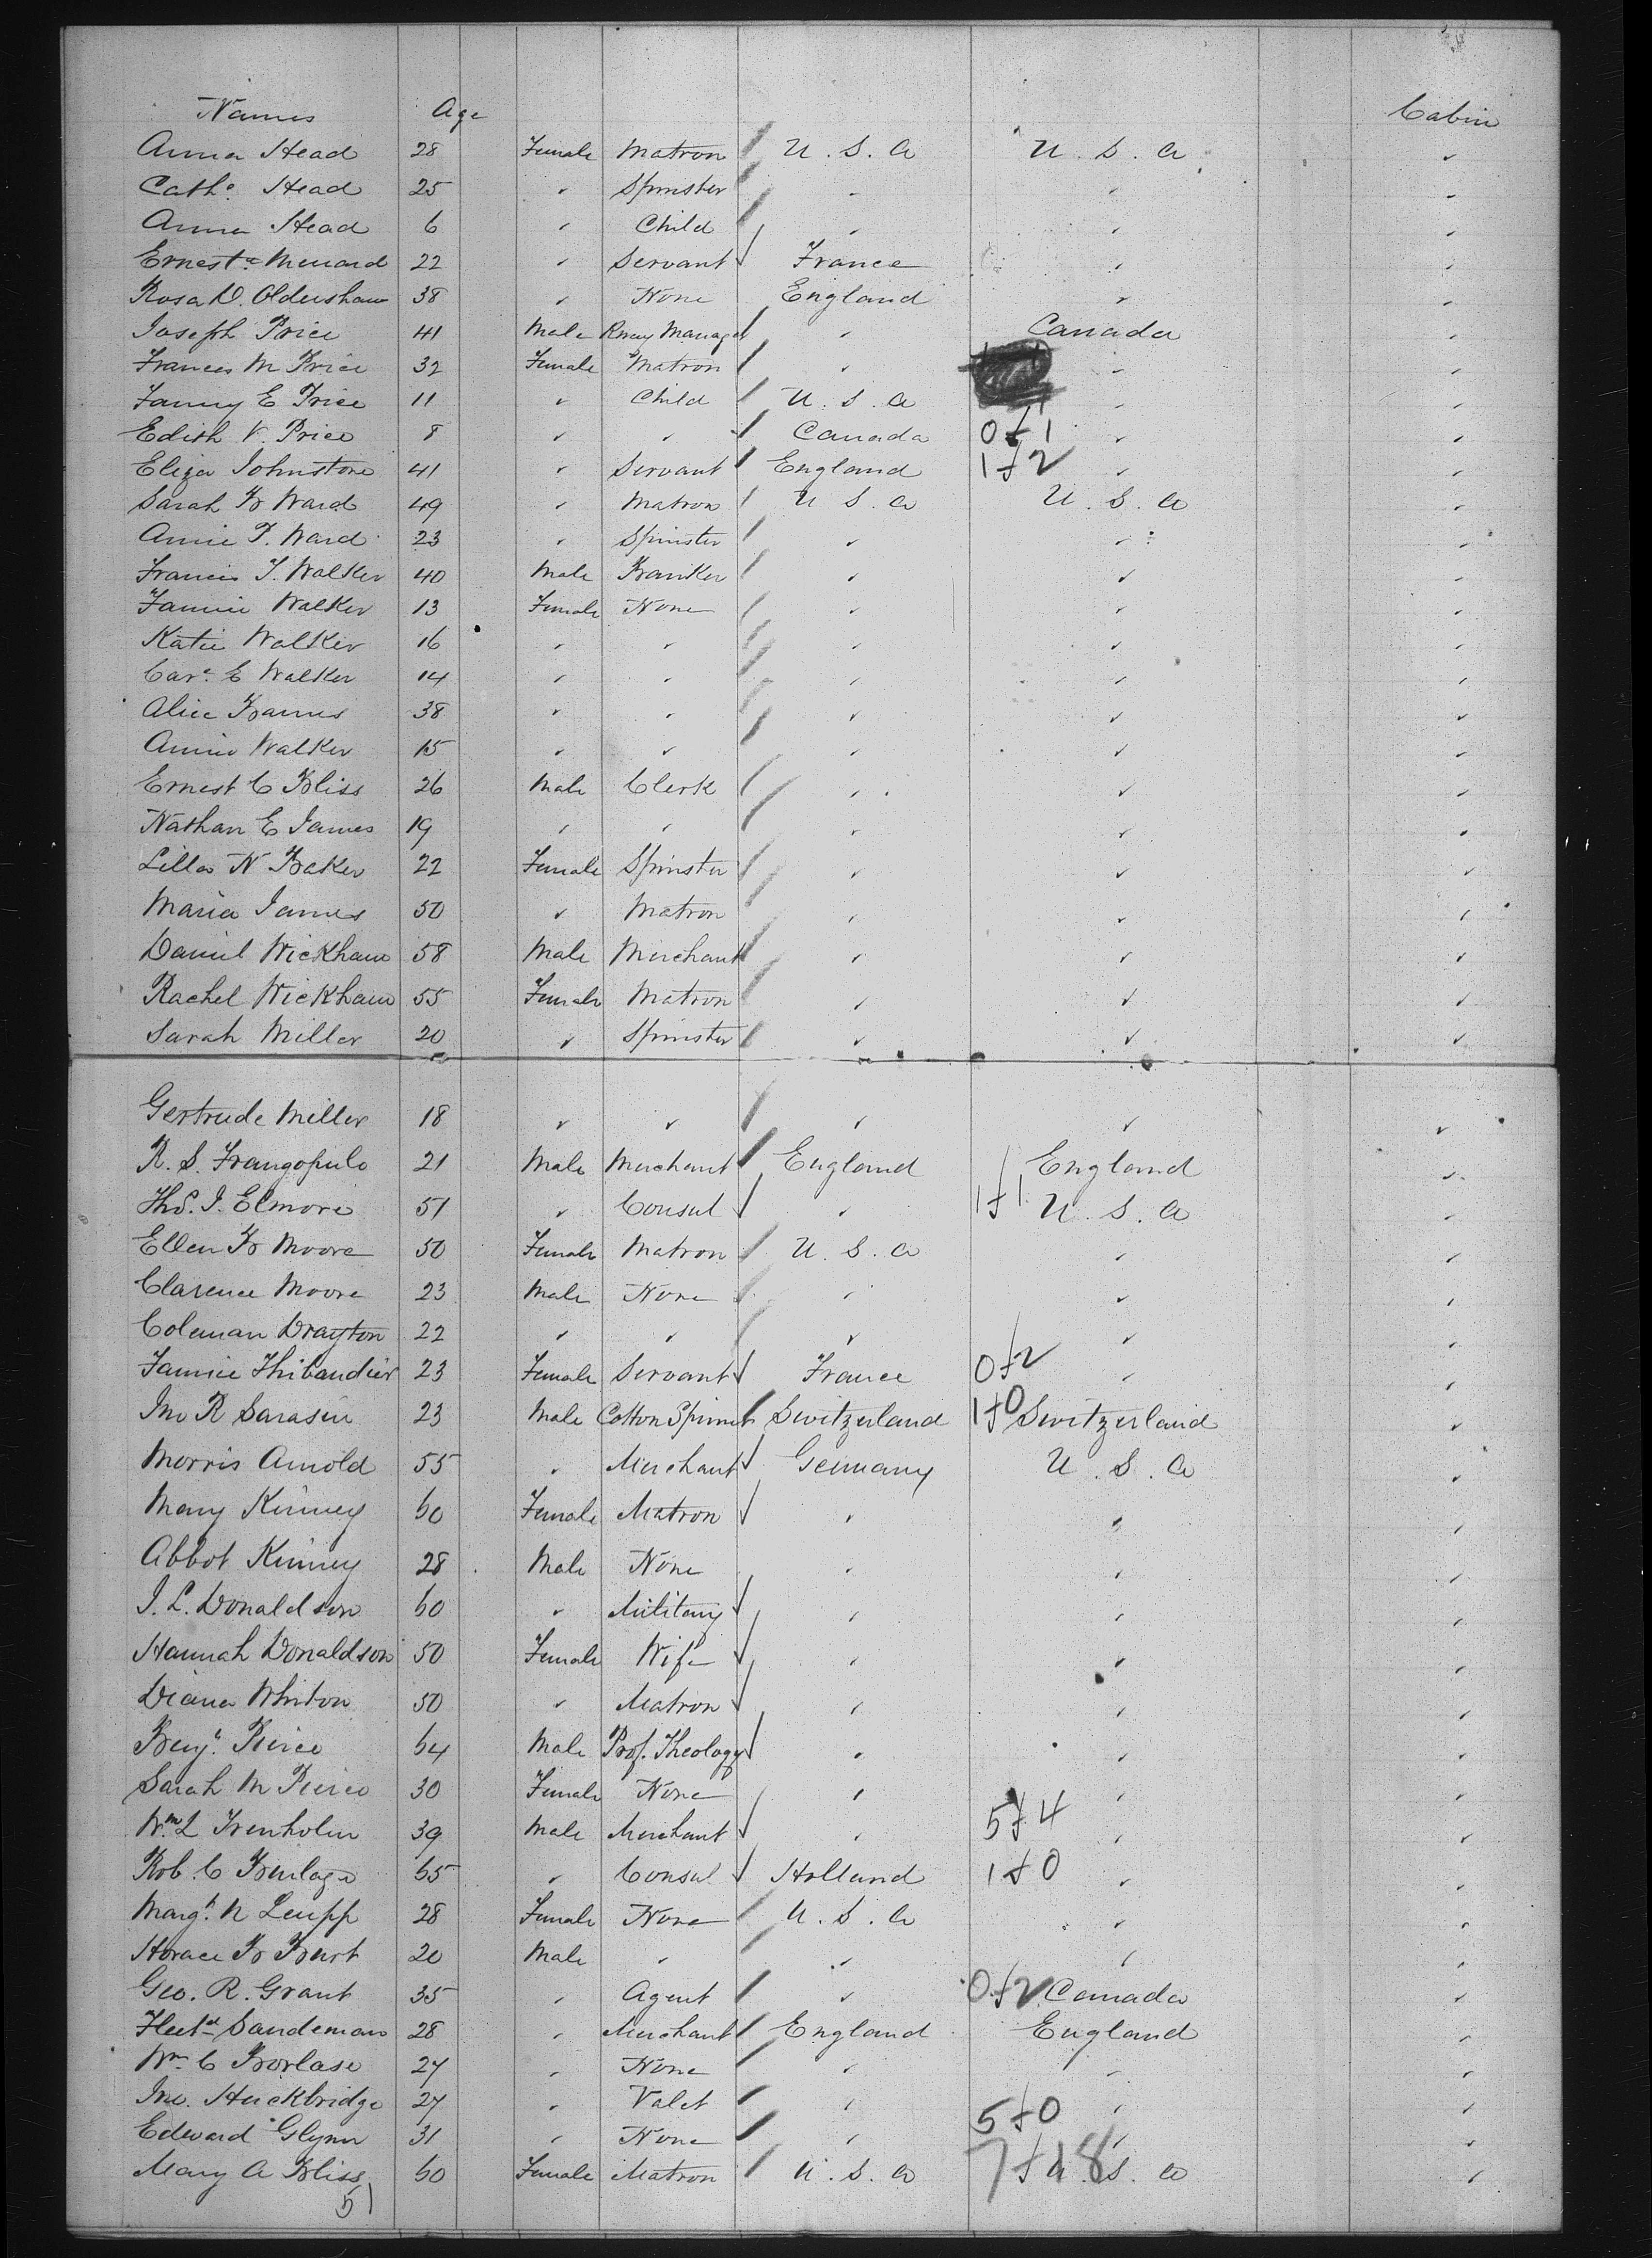 Names Age Cabin
Anna Head 28 Female Matron U. S. A U. S. A
Cathe Head 25 " Spinster " "
Anna Head 6 " Child " "
Ernestne Menard 22 " Servant France "
Rosa D. Oldershaw 38 " None England "
Joseph Price 41 Male Rway Manager " Canada
Frances M Price 32 Female Matron " "
Fanny E Price 11 " Child U. S. A "
Edith V. Price 8 " " Canada 0 + 1 "
Eliza Johnstone 41 " Servant England 1 + 2 "
Sarah B Ward 49 " Matron U S. A U. S. A
Annie P. Ward 23 " Spinster " "
Francis T. Walker 40 Male Banker " "
Fannie Walker 13 Female None " "
Katie Walker 16 " " " "
Care E Walker 14 " " " "
Alice Barnes 38 " " " "
Annie Walker 15 " " " "
Ernest C Bliss 26 Male Clerk " "
Nathan E James 19 " " " "
Lilla N Baker 22 Female Spinster " "
Maria James 50 " Matron " "
Daniel Wickham 58 Male Merchant " "
Rachel Wickham 55 Female Matron " "
Sarah Miller 20 " Spinster " "
Gertrude Miller 18 " " " "
R. S. Frangopulo 21 Male Merchant England England
Ths. J. Elmore 51 " Consul " 1 + 1 U. S. A
Ellen B Moore 50 Female Matron U. S. A "
Clarence Moore 23 Male None " "
Coleman Drayton 22 " " " "
Fannie Thibaudier 23 Female Servant France 0 + 2 "
Jno R Sarasin 23 Male Cotton Spinner Switzerland 1 + 0 Switzerland
Morris Arnold 55 " Merchant Germany U. S. A
Mary Kinney 60 Female Matron " "
Abbot Kinney 28 Male None " "
J. L. Donaldson 60 " Military " "
Hannah Donaldson 50 Female Wife " "
Diana Whiton 50 " Matron " "
Benjn Pierce 64 Male Prof. Theology " "
Sarah M Pierce 30 Female None " "
Wm L Trenholm 39 Male Merchant " 5 + 4 "
Rob. C Burlage 65 " Consul Holland 1 + 0 "
Margt N Leupp 28 Female None U. S. A "
Horace B Burt 20 Male " " "
Geo. R. Grant 35 " Agent " 0 + 2 Canada
Fleetd Sandeman 28 " Merchant England England
Wm C Borlase 27 " None " "
Jno. Huckbridge 27 " Valet " 5 + 0 "
Edward Glynn 31 " None " "
Mary A Bliss 60 Female Matron U. S. A 7 + 18 U. S. A
51